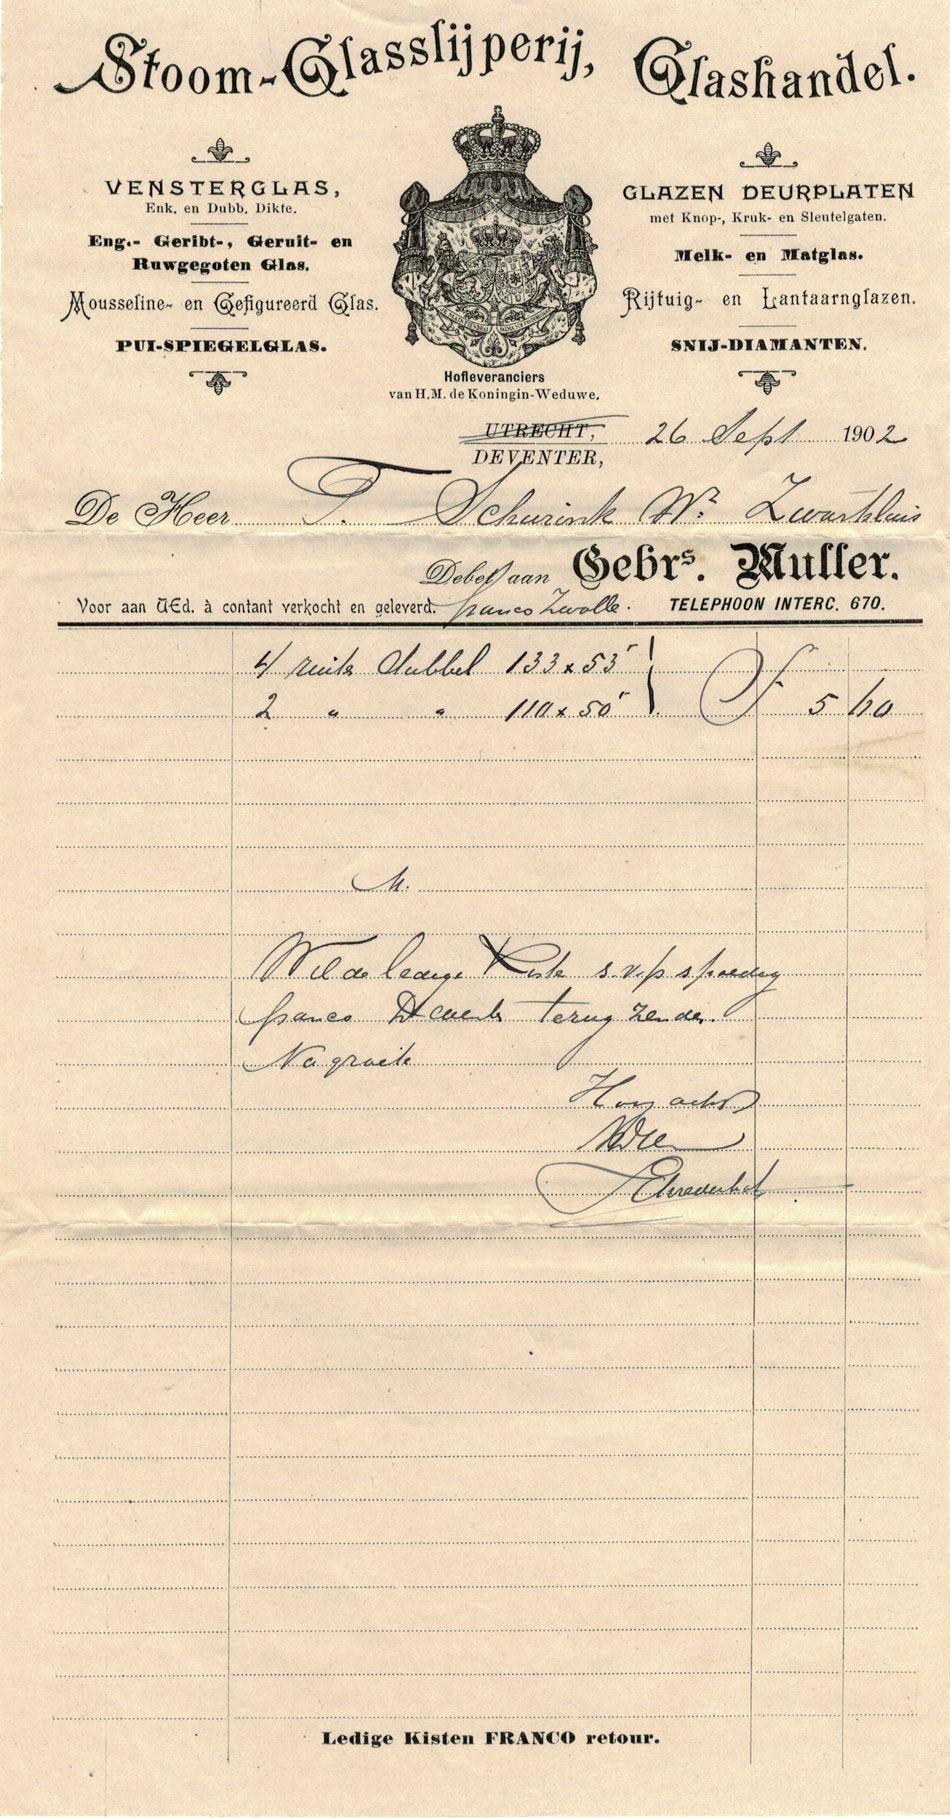 Stoom-Glasslijperij, Glashandel.
VENSTERGLAS,
Enk. en Dubb. Dikte.
Eng.- Geribt-, Geruit- en
Ruwgegoten Glas.
Mousseline- en Gefigureerd Glas.
PUI-SPIEGELGLAS.
GLAZEN DEURPLATEN
met Knop-, Kruk- en Sleutelgaten.
Melk- en Matglas.
Rijtuig- en Lantaarnglazen.
SNIJ-DIAMANTEN.
Hofleveranciers
van H.M. de Koningin-Weduwe.
UTRECHT,
DEVENTER, 26 Sept 1902
De Heer T. Schurink Wz Zwartsluis
Debet aan Gebrs. Muller.
Voor aan UEd. à contant verkocht en geleverd. franco Zwolle. TELEPHOON INTERC. 670.
4 ruiten dubbel 133 x 53
2 " " 110 x 50 f 5 60
M.
Wil de ledige Kiste s.v.p spoedig
franco Deventer terug zenden.
Na groete
Hoogachtd
Ledige Kisten FRANCO retour.